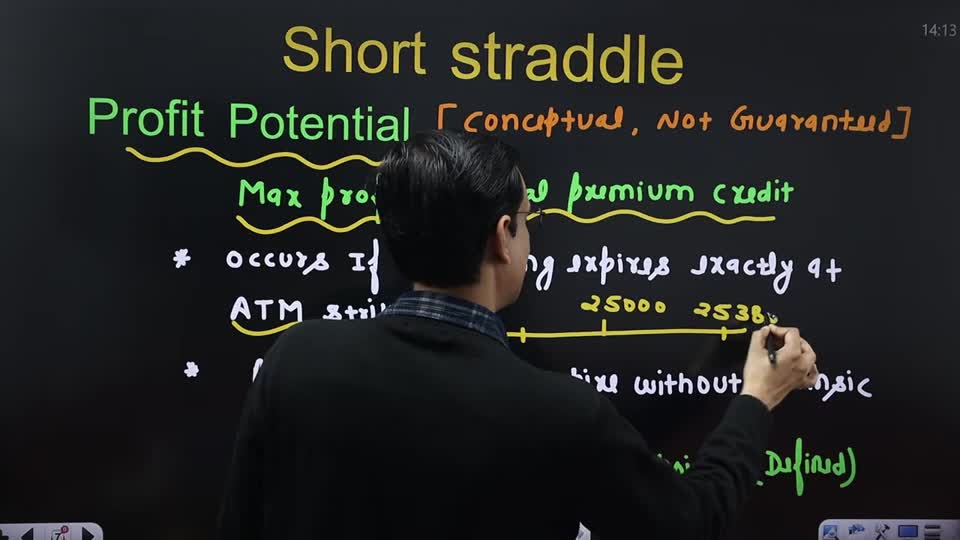 14:13
Short straddle
Profit Potential [Conceptual, Not Guaranteed]
Max premium credit
* Occurs If expires exactly at
ATM 25000 2538
* without
Defined)